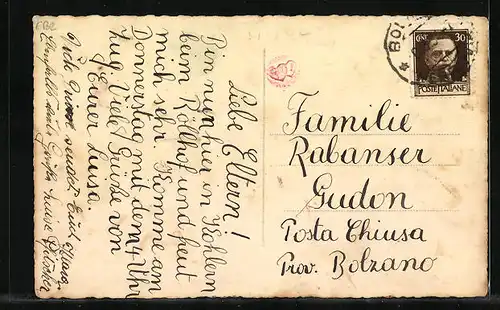 Liebe Eltern!
Bin nun hier in Kohlern
beim Kohlhof und freut
mich sehr. Komme am
Donnerstag mit dem 4 Uhr
Zug. Viele Grüße von
Eurer Luisa.
Viele Grüsse sendet Euch
Ebenfalls Grüße Luise
Familie
Rabanser
Gudon
Posta Chiusa
Prov. Bolzano
30
POSTE ITALIANE
BOL